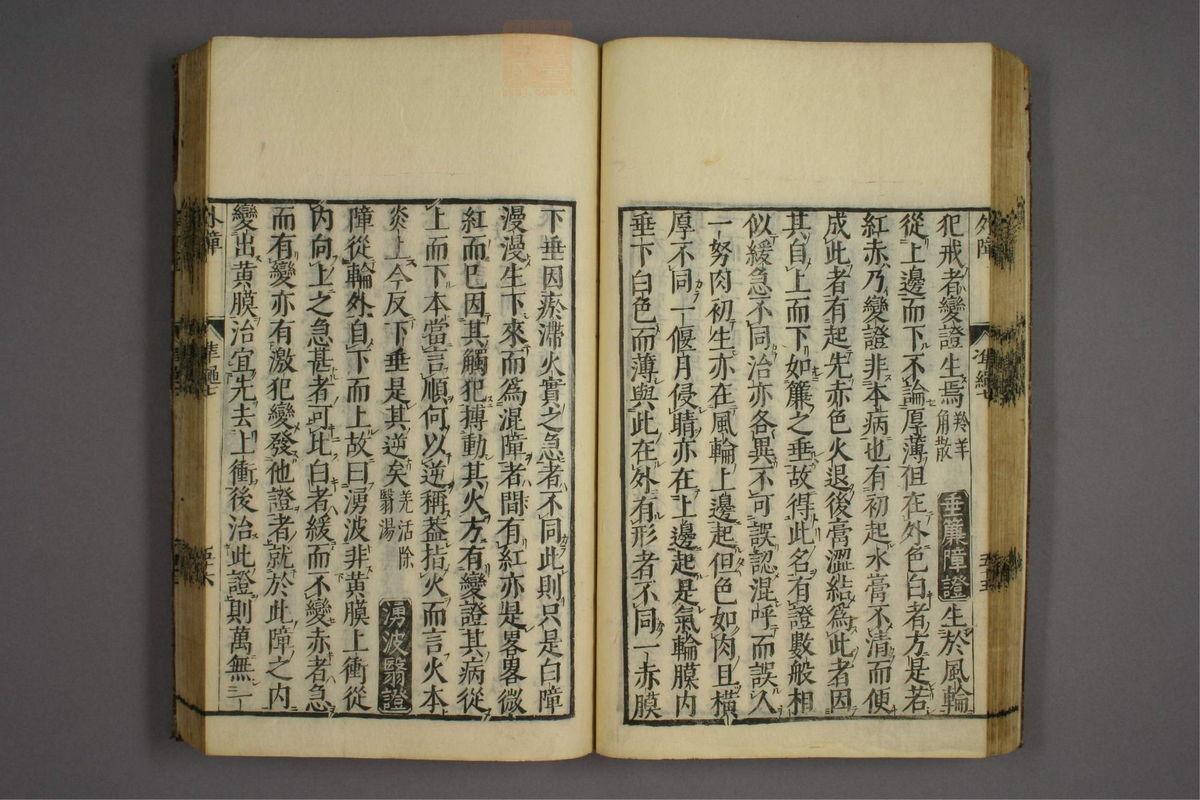 犯戒者變證生焉羚羊角散垂簾障證生於風輪
從上邊而下不論厚薄但在外色白者方是若
紅赤乃變證非本病也有初起水膏不清而便
成此者有起先赤色火退後膏澀結爲此者因
其自上而下如簾之垂故得此名有證數般相
似緩急不同治亦各異不可誤認混呼而誤人
一努肉初生亦在風輪上邊起但色如肉且橫
厚不同一偃月侵睛亦在上邊起是氣輪膜內
垂下白色而薄與此在外有形者不同一赤膜
外障
準繩七
五十五
下垂因瘀滯火實之急者不同此則只是白障
漫漫生下來而爲混障者間有紅亦是畧畧微
紅而已因其觸犯搏動其火方有變證其病從
上而下本當言順何以逆稱葢指火而言火本
炎上今反下垂是其逆矣羌活除翳湯湧波翳證
障從輪外自下而上故曰湧波非黃膜上衝從
內向上之急甚者可比白者緩而不變赤者急
而有變亦有激犯變發他證者就於此障之內
變出黃膜治宜先去上衝後治此證則萬無一
外障
準繩七
五十六